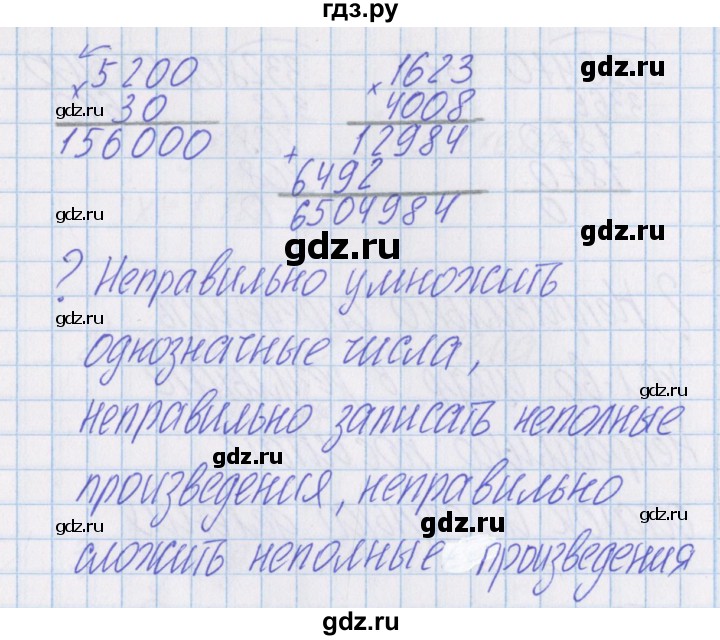 гдз.ру
5200 1623
× 30 × 4008
156000 12984
+ 6492
6504984
? Неправильно умножить
однозначные числа,
неправильно записать неполные
произведения, неправильно
сложить неполные произведения
gdz.ru
gdz.ru
gdz.ru
gdz.ru
gdz.ru
gdz.ru
gdz.ru
gdz.ru
gdz.ru
gdz.ru
gdz.ru
gdz.ru
gdz.ru